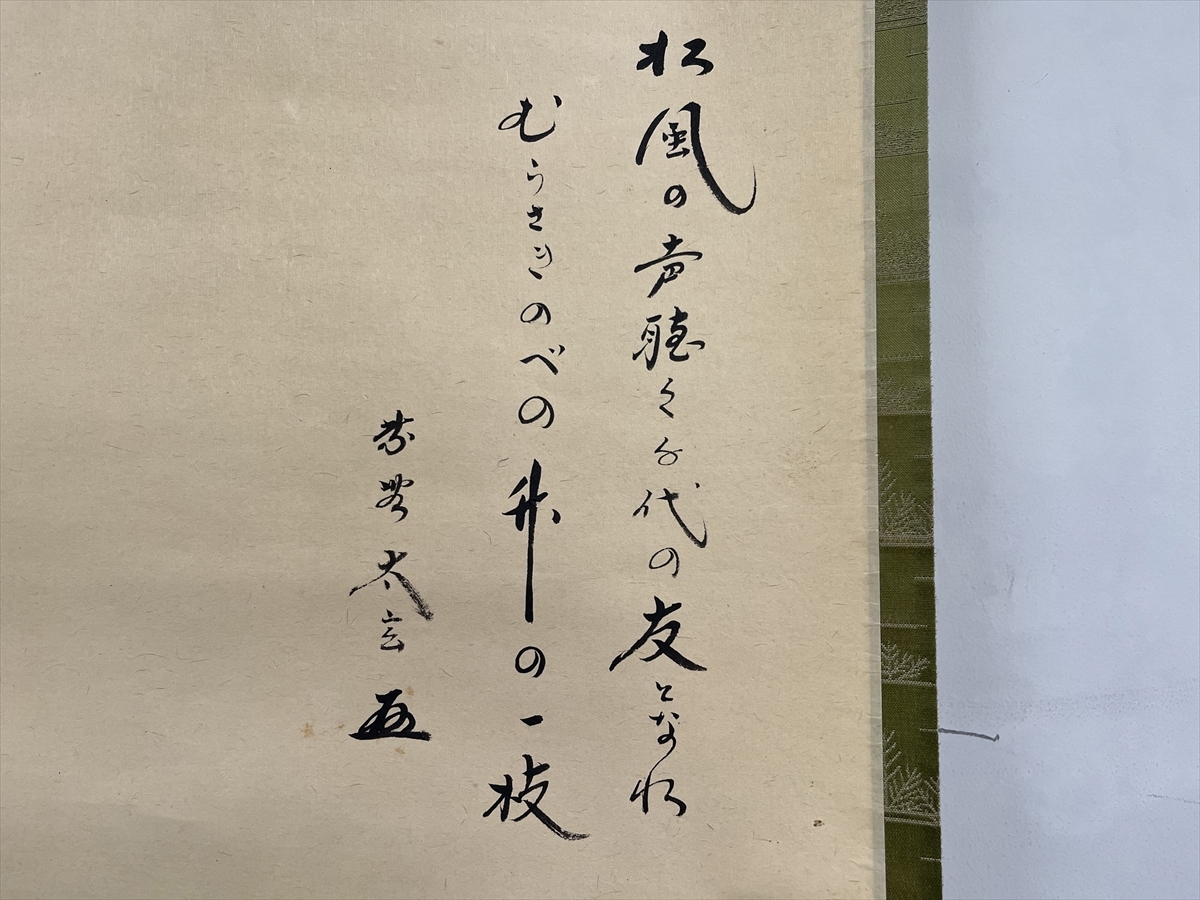 松風の声聴く千代の友となれ
むらさきのべの竹の一枝
紫野太玄